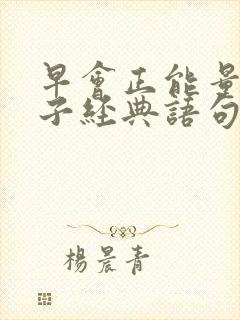 早會正能量
子經典語句
楊晨青